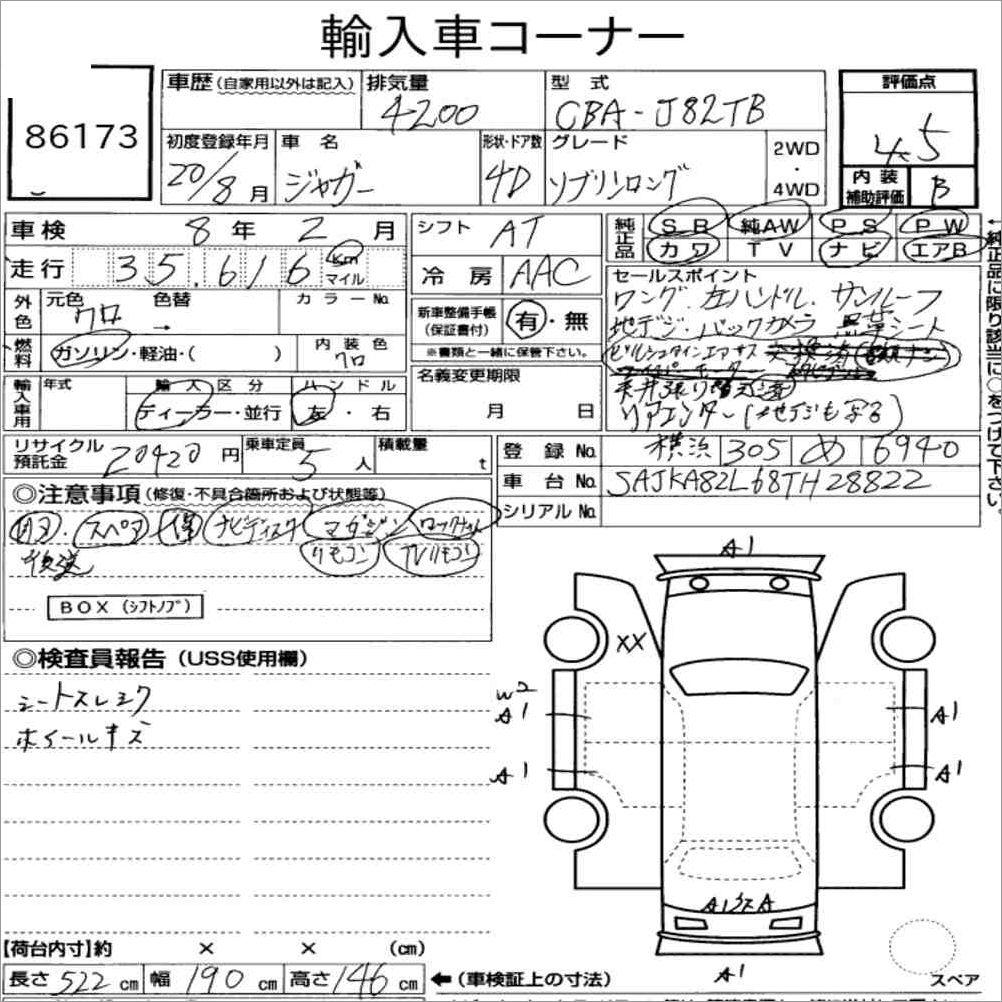 輸入車コーナー
86173
車歴 (自家用以外は記入) 排気量 型式 評価点
4200 CBA-J82TB
4.5
初度登録年月 車名 形状・ドア数 グレード 2WD・4WD
20/8月 ジャガー 4D ソブリンロング
内装補助評価 B
車検 8年 2月
シフト AT
純正品 S R 純AW P S P W
カワ T V ナビ エアB
走行 35,616 Km マイル
冷房 AAC
セールスポイント
ロング.左ハンドル.サンルーフ
地デジ・バックカメラ 黒革シート
外色 元色 クロ 色替 → カラーNo.
新車整備手帳(保証書付) 有・無
※書類と一緒に保管下さい。
燃料 ガソリン・軽油・( ) 内装色 クロ
天井張り替え済
輸入車用 年式 輸入区分 ハンドル
ディーラー・並行 左・右
名義変更期限
月 日
リアエンター(地デジも写る)
リサイクル預託金 20420円 乗車定員 5人 積載量 t
登録No. 横浜 305 め 6940
車台No. SAJKA82L68TH28822
シリアルNo.
◎注意事項(修復・不具合箇所および状態等)
スペア ナビディスク マガジン ロックナット
リモコン TVリモコン
後送
BOX (シフトノブ)
◎検査員報告 (USS使用欄)
シートスレシワ
ホイールキズ
A1
XX
W2
A1 A1
A1 A1
A1
【荷台内寸】約 × × (cm)
長さ 522 cm 幅 190 cm 高さ 146 cm ←(車検証上の寸法)
スペア
←純正品に限り該当に○をつけて下さい。